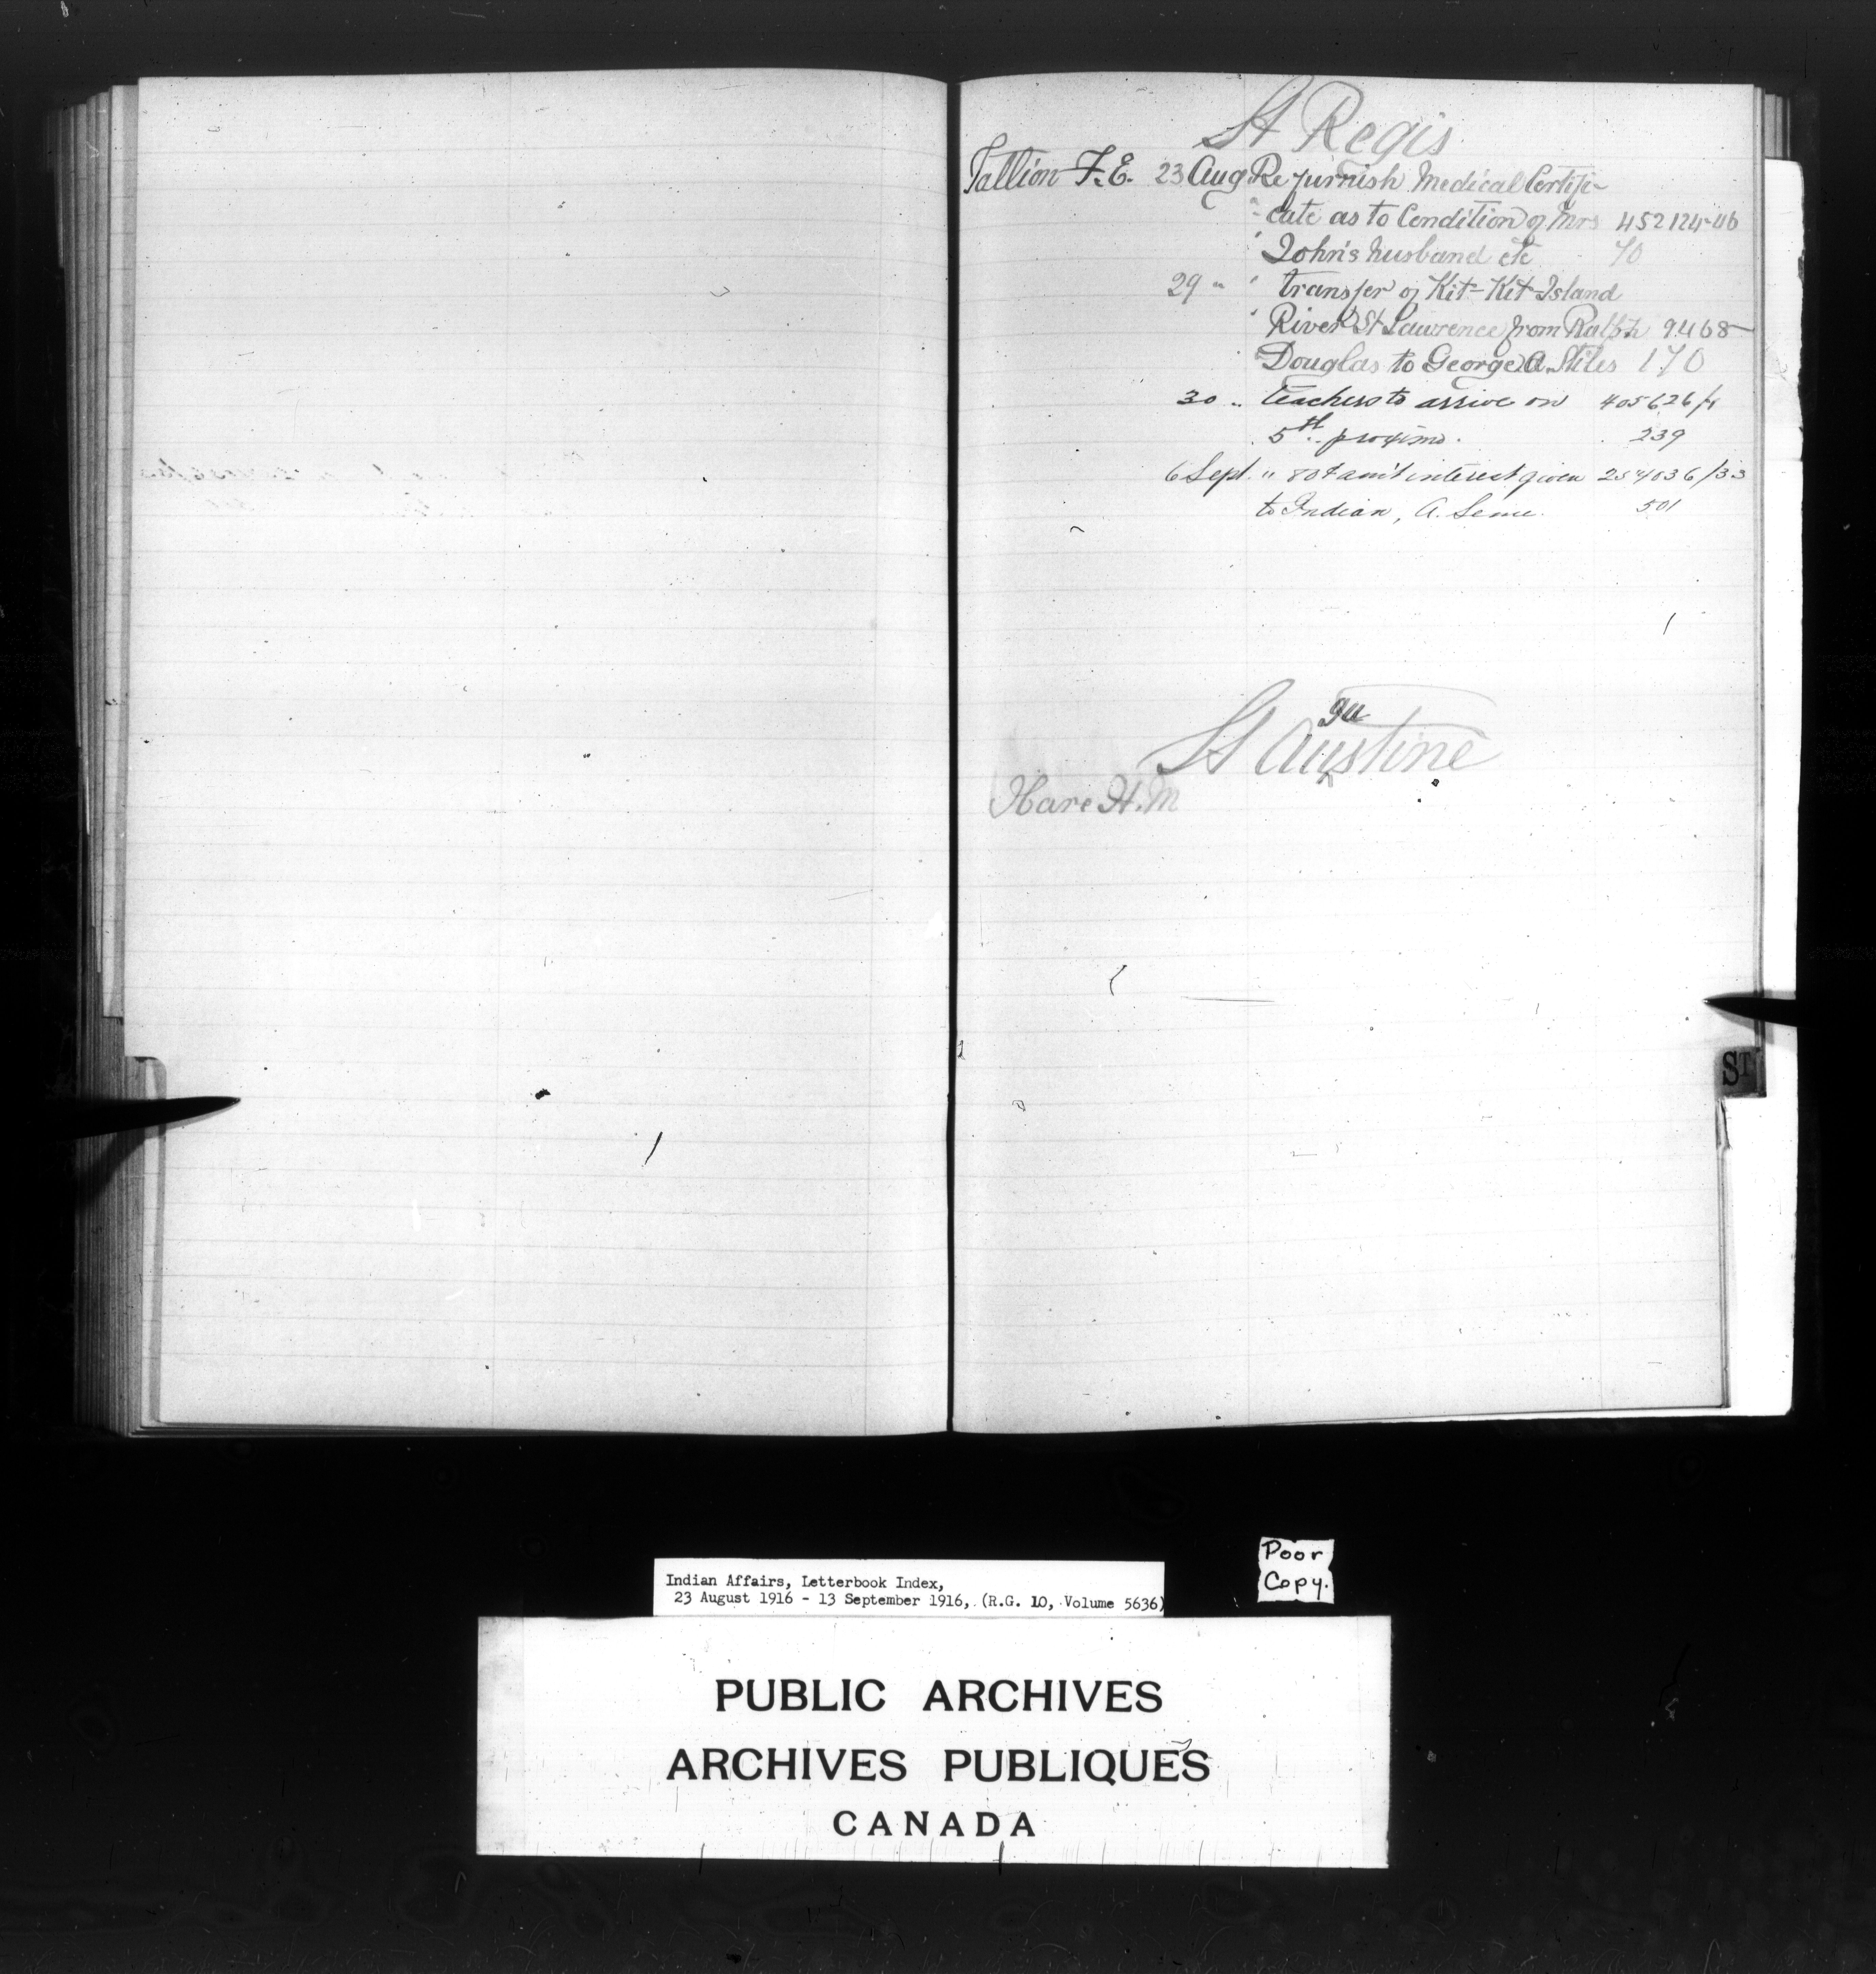 St Regis
Tallion F.E. 23 Aug Re furnish Medical Certifi-
cate as to Condition of Mrs 452124-46
John's husband etc 70
29 " " transfer of Kit-Kit Island
" River St Lawrence from Ralph 9468-
" Douglas to George A. Stiles 170
30 " teachers to arrive on 405626/1
5th proximo. 239
6 Sept. " 80¢ amt interest given /33
to Indian, A. 501
gu
St Austine
Hare H.M
ST
Poor
Copy.
Indian Affairs, Letterbook Index,
23 August 1916 - 13 September 1916, (R.G. 10, Volume 5636)
PUBLIC ARCHIVES
ARCHIVES PUBLIQUES
CANADA